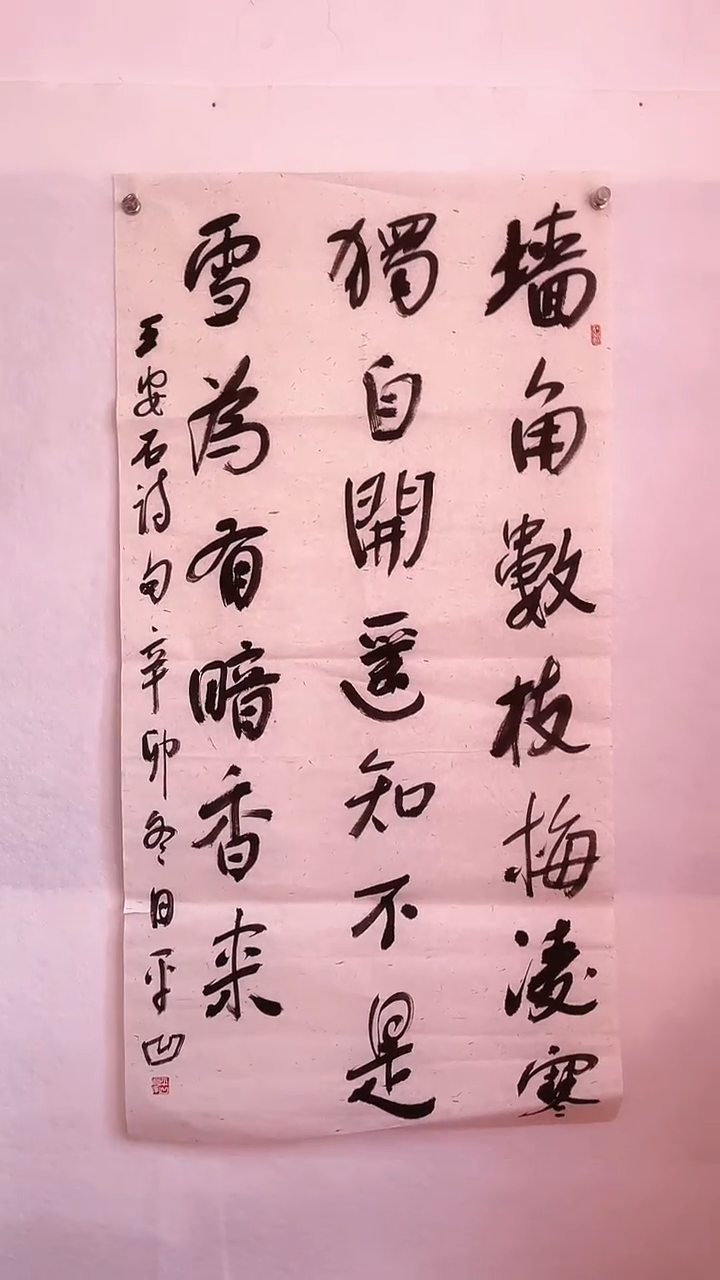 墙角數枝梅凌寒
獨自開遥知不是
雪為有暗香来
王安石诗句辛卯冬日平凹